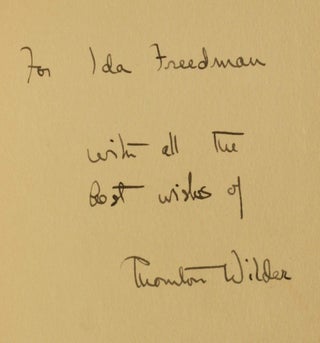 For Ida Freedman
with all the
best wishes of
Thornton Wilder